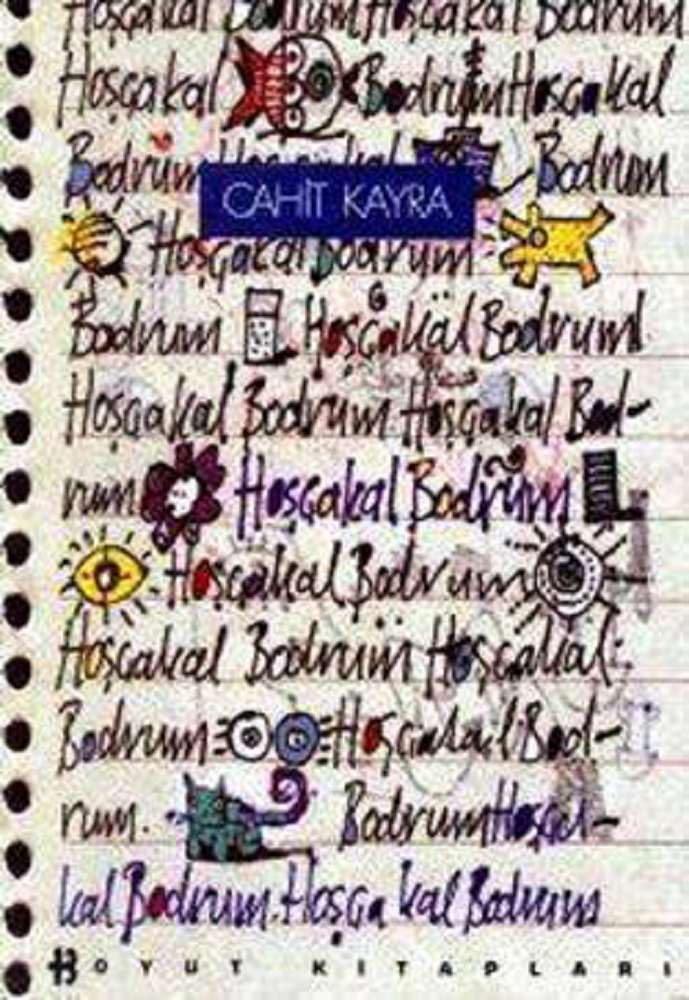 Hoşçakal Bodrum Hoşçakal Bodrum
Hoşçakal Bodrum Hoşçakal
Bodrum Hoşçakal Bodrum
CAHİT KAYRA
Hoşçakal Bodrum
Bodrum Hoşçakal Bodrum
Hoşçakal Bodrum Hoşçakal Bod-
rum Hoşçakal Bodrum
Hoşçakal Bodrum
Hoşçakal Bodrum Hoşçakal
Bodrum Hoşçakal Bod-
rum. Bodrum Hoşça-
kal Bodrum. Hoşça kal Bodrum
BOYUT KİTAPLARI